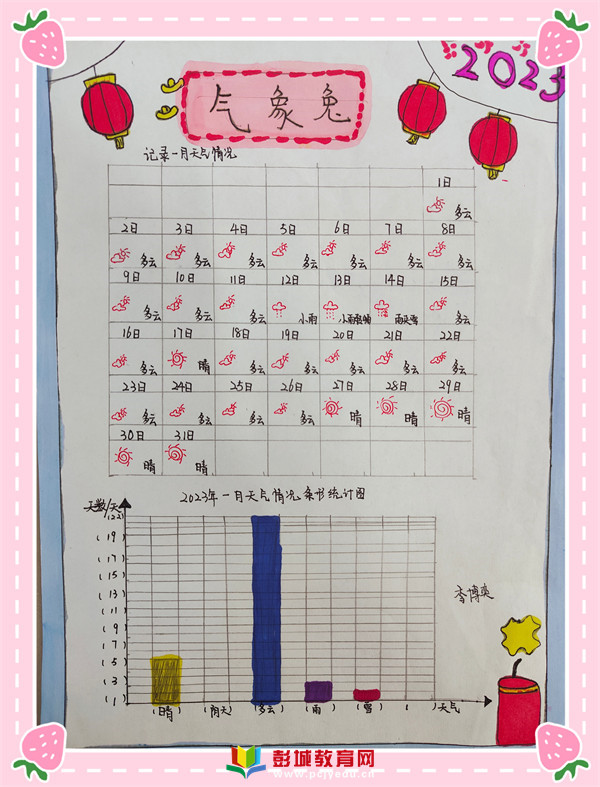 2023
气象兔
记录一月天气情况
1日
多云
2日 3日 4日 5日 6日 7日 8日
多云 多云 多云 多云 多云 多云 多云
9日 10日 11日 12日 13日 14日 15日
多云 多云 多云 小雨 多云
16日 17日 18日 19日 20日 21日 22日
多云 晴 多云 多云 多云 多云 多云
23日 24日 25日 26日 27日 28日 29日
多云 多云 多云 多云 晴 晴 晴
30日 31日
晴 晴
2023年一月天气情况条形统计图
天数/天
(22)
(19)
(17)
(15)
(13)
(11)
(9)
(7)
(5)
(3)
(1
(晴) (阴天) (多云) (雨) (雪) ( )天气
李博奕
彭城教育网
www.pcjyedu.cn